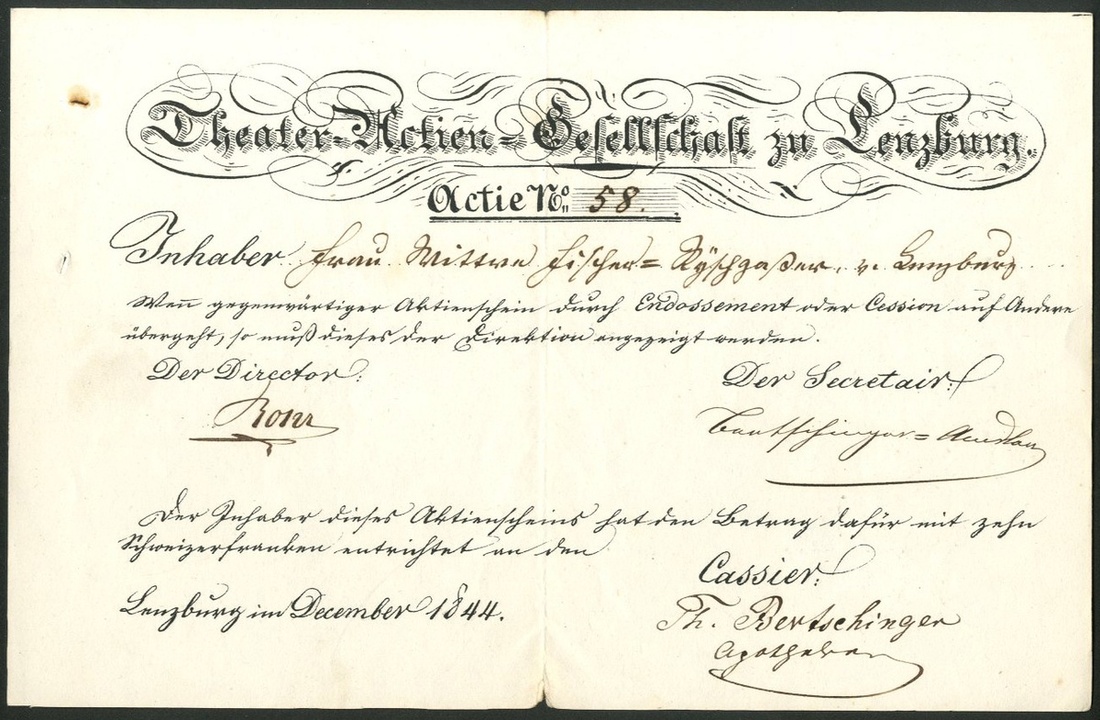 Theater-Actien-Gesellschaft zu Lenzburg.
Actie No. 58.
Inhaber Frau Wittwe Fischer= v. Lenzburg
Wenn gegenwärtiger Aktienschein durch Endossement oder Cession auf Andere
übergeht, so muß dieses der Direktion angezeigt werden.
Der Director: Der Secretair:
Bertschinger=
Der Inhaber dieses Aktienscheins hat den Betrag dafür mit zehn
Schweizerfranken entrichtet an den
Cassier:
Lenzburg im December 1844.
Th. Bertschinger
Apotheker